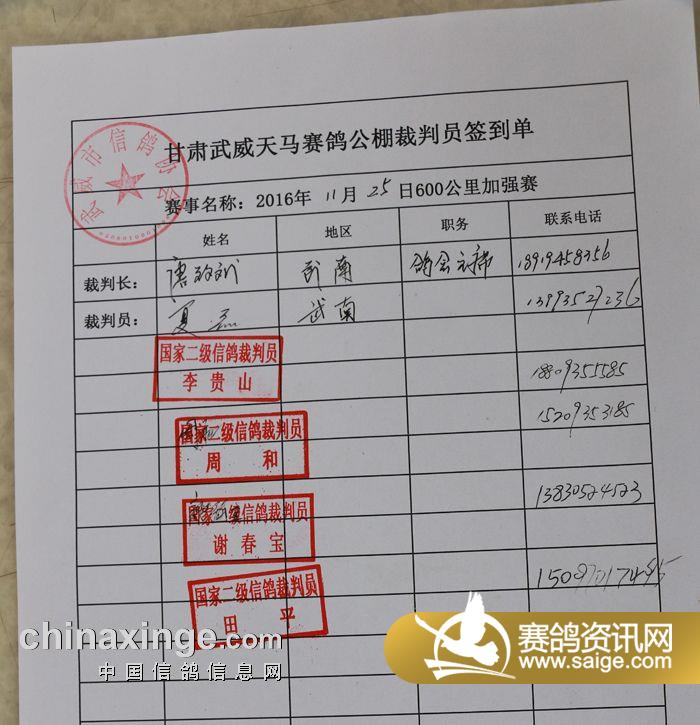 甘肃武威天马赛鸽公棚裁判员签到单
武威市信鸽协会
赛事名称：2016年 11月 25日600公里加强赛
姓名 地区 职务 联系电话
裁判长： 武南 鸽会主席 18919458356
裁判员：夏 武南 13993527236
国家二级信鸽裁判员
李贵山
18809351585
15209353185
国家二级信鸽裁判员
周 和
13830524523
国家二级信鸽裁判员
谢春宝
国家二级信鸽裁判员
田 平
chinaxinge.com
中国信鸽信息网
赛鸽资讯网
www.saige.com